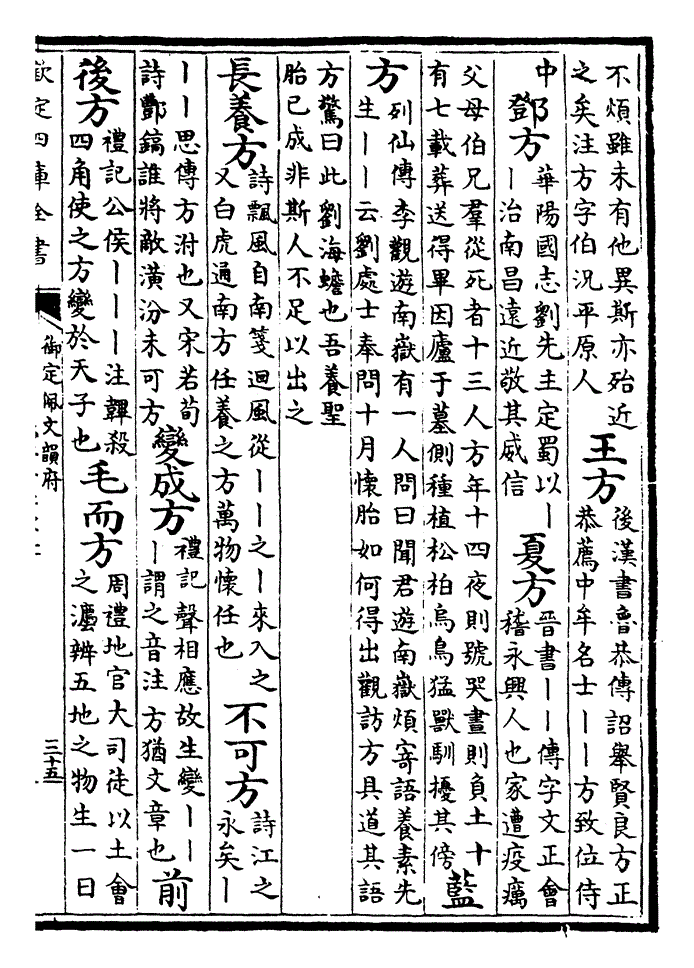 不煩雖未有他異斯亦殆近
之矣注方字伯況平原人
王方
後漢書魯恭傳詔舉賢良方正
恭薦中牟名士丨丨方致位侍
中
鄧方
華陽國志劉先主定蜀以丨
丨治南昌遠近敬其威信
夏方
晉書丨丨傳字文正會
稽永興人也家遭疫癘
父母伯兄羣從死者十三人方年十四夜則號哭晝則負土十
有七載葬送得畢因廬于墓側種植松柏烏鳥猛獸馴擾其傍
藍
方
列仙傳李觀遊南嶽有一人問曰聞君遊南嶽煩寄語養素先
生丨丨云劉處士奉問十月懷胎如何得出觀訪方具道其語
方驚曰此劉海蟾也吾養聖
胎已成非斯人不足以出之
長養方
詩飄風自南箋迴風從丨丨之丨來入之
又白虎通南方任養之方萬物懷任也
不可方
詩江之
永矣丨
丨丨思傳方泭也又宋若荀
詩酆鎬誰將敵潢汾未可方
變成方
禮記聲相應故生變丨丨
丨謂之音注方猶文章也
前
後方
禮記公侯丨丨丨注鞸殺
四角使之方變於天子也
毛而方
周禮地官大司徒以土會
之灋辨五地之物生一日
欽定四庫全書
御定佩文韻府
三十五